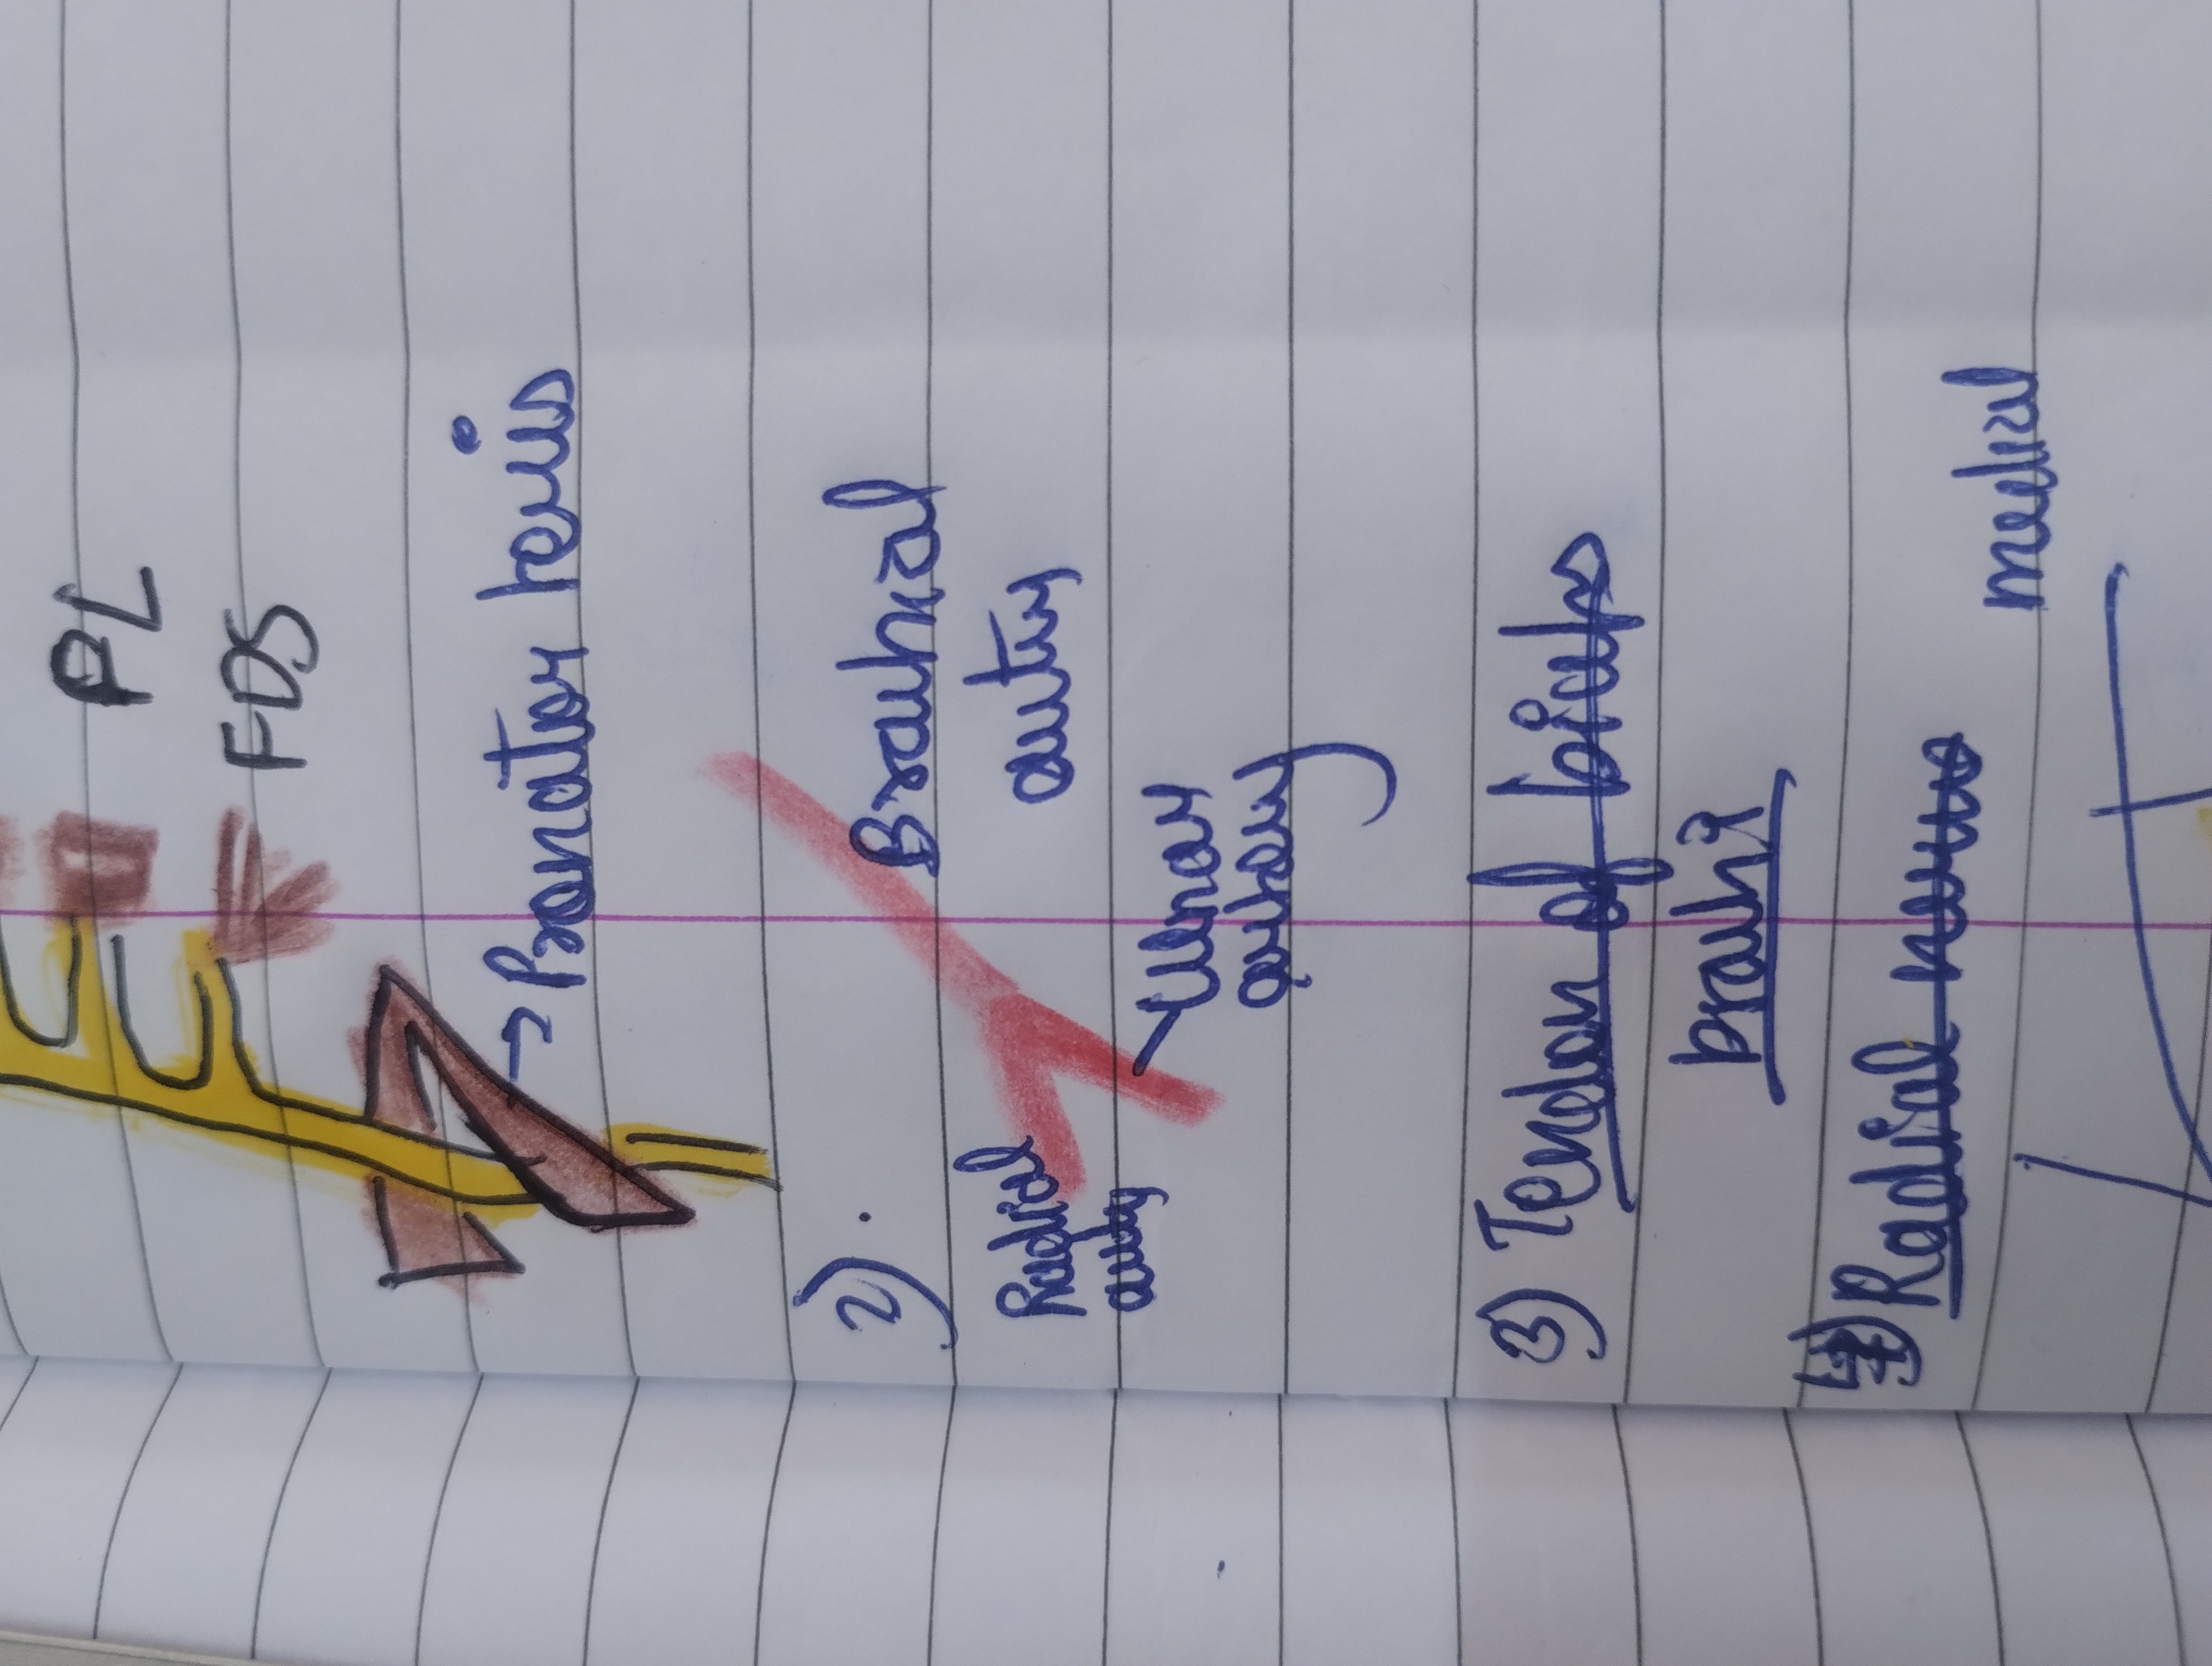 PL
FDS
→ Pronator teris
2). Brachial
artery
Radial
artery
Ulnar
artery
3) Tendon of biceps
brachi
4) Radial nerve
medial